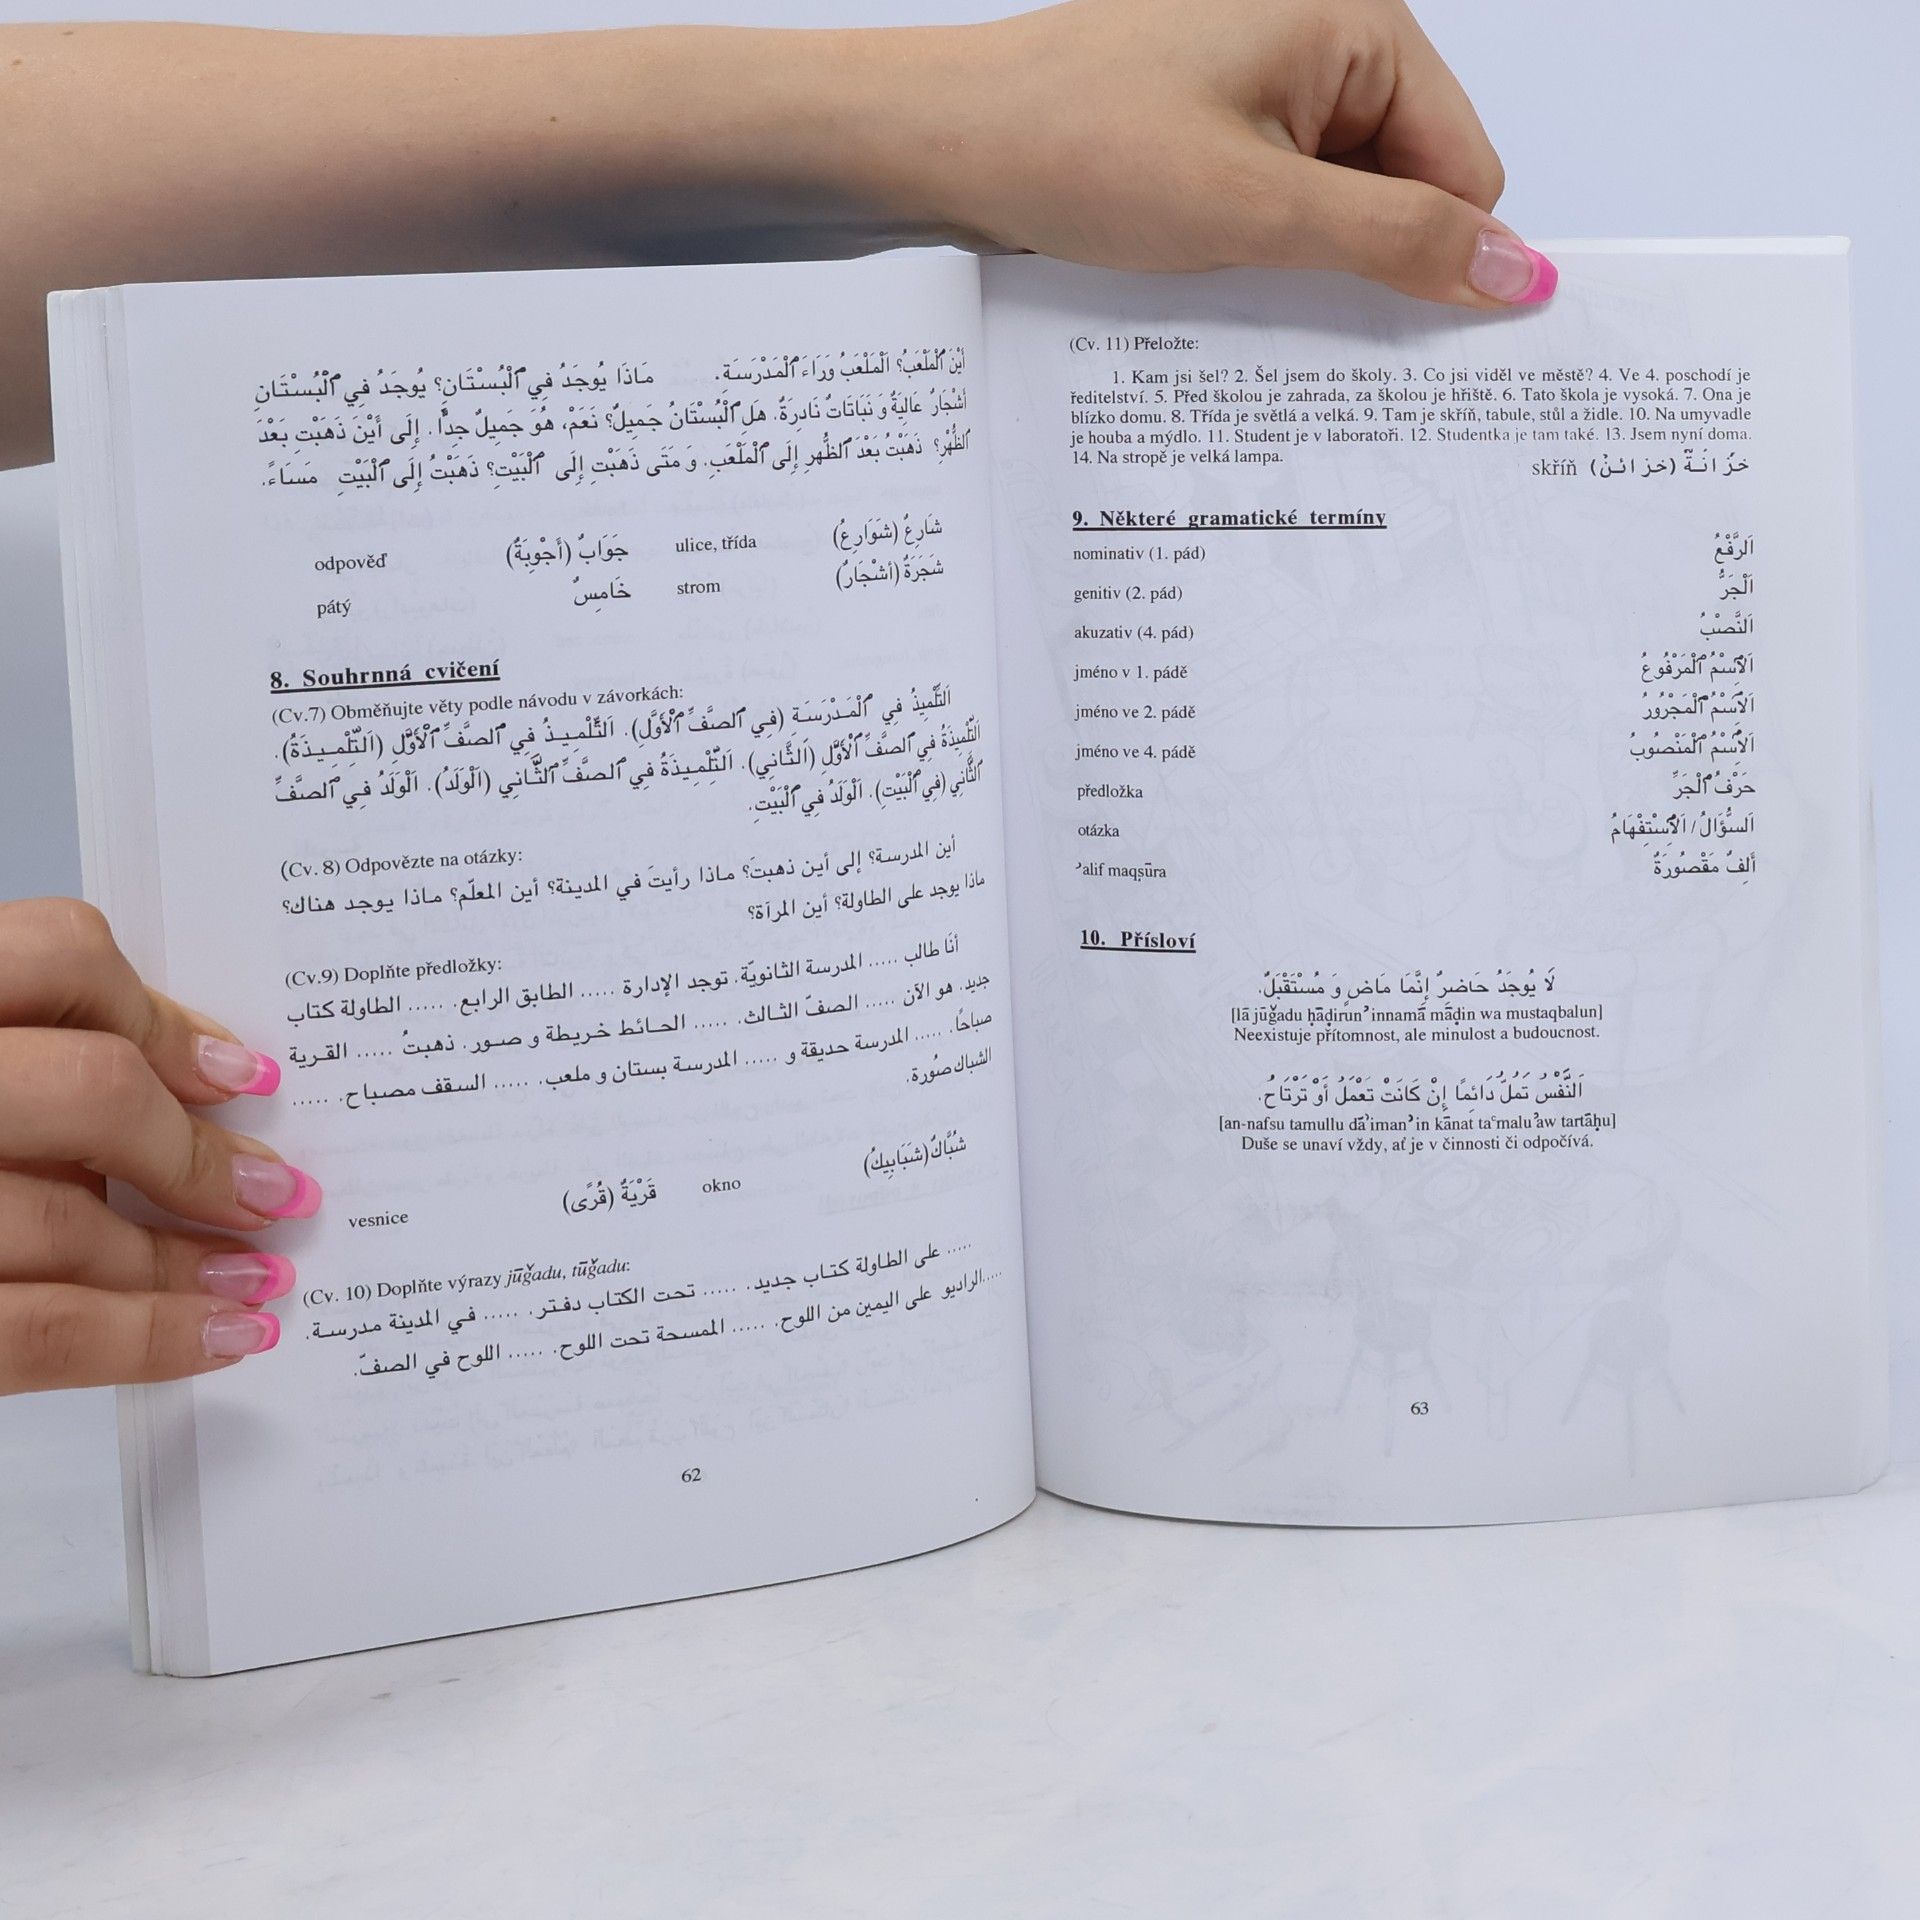 أَيْنَ ٱلْمَلْعَبُ؟ اَلْمَلْعَبُ وَرَاءَ ٱلْمَدْرَسَة. مَاذَا يُوجَدُ فِي ٱلْبُسْتَانِ؟ يُوجَدُ فِي ٱلْبُسْتَانِ
أَشْجَارٌ عَالِيَةٌ وَ نَبَاتَاتٌ نَادِرَةٌ. هَلِ ٱلْبُسْتَانُ جَمِيلٌ؟ نَعَمْ، هُوَ جَمِيلٌ جِدًّا. إِلَى أَيْنَ ذَهَبْتِ بَعْدَ
ٱلظُّهْرِ؟ ذَهَبْتُ بَعْدَ ٱلظُّهْرِ إِلَى ٱلْمَلْعَبِ. وَ مَتَى ذَهَبْتِ إِلَى ٱلْبَيْتِ؟ ذَهَبْتُ إِلَى ٱلْبَيْتِ مَسَاءً.
odpověď جَوَابٌ (أَجْوِبَةٌ) ulice, třída شَارِعٌ (شَوَارِعُ)
pátý خَامِسٌ strom شَجَرَةٌ (أَشْجَارٌ)
8. Souhrnná cvičení
(Cv.7) Obměňujte věty podle návodu v závorkách:
اَلتِّلْمِيذُ فِي ٱلْمَدْرَسَةِ (فِي ٱلصَّفِّ ٱلْأَوَّلِ). اَلتِّلْمِيذُ فِي ٱلصَّفِّ ٱلْأَوَّلِ (اَلتِّلْمِيذَةُ).
اَلتِّلْمِيذَةُ فِي ٱلصَّفِّ ٱلْأَوَّلِ (اَلثَّانِي). اَلتِّلْمِيذَةُ فِي ٱلصَّفِّ ٱلثَّانِي (اَلْوَلَدُ). اَلْوَلَدُ فِي ٱلصَّفِّ
ٱلثَّانِي (فِي ٱلْبَيْتِ). اَلْوَلَدُ فِي ٱلْبَيْتِ.
(Cv. 8) Odpovězte na otázky:
أين المدرسة؟ إلى أين ذهبتَ؟ ماذا رأيتَ في المدينة؟ أين المعلّم؟ ماذا يوجد هناك؟
ماذا يوجد على الطاولة؟ أين المرآة؟
(Cv.9) Doplňte předložky:
أنَا طالب ..... المدرسة الثانويّة. توجد الإدارة ..... الطابق الرابع. ..... الطاولة كتاب
جديد. هو الآن ..... الصفّ الثالث. ..... الحائط خريطة و صور. ذهبتُ ..... القرية
صباحًا. ..... المدرسة حديقة و ..... المدرسة بستان و ملعب. ..... السقف مصباح. .....
الشباك صُورة.
vesnice قَرْيَةٌ (قُرًى) okno شُبَّاكٌ (شَبَابِيكُ)
(Cv. 10) Doplňte výrazy jūǧadu, tūǧadu:
..... على الطاولة كتاب جديد. ..... تحت الكتاب دفتر. ..... في المدينة مدرسة.
..... الراديو على اليمين من اللوح. ..... الممسحة تحت اللوح. ..... اللوح في الصفّ.
62
(Cv. 11) Přeložte:
1. Kam jsi šel? 2. Šel jsem do školy. 3. Co jsi viděl ve městě? 4. Ve 4. poschodí je
ředitelství. 5. Před školou je zahrada, za školou je hřiště. 6. Tato škola je vysoká. 7. Ona je
blízko domu. 8. Třída je světlá a velká. 9. Tam je skříň, tabule, stůl a židle. 10. Na umyvadle
je houba a mýdlo. 11. Student je v laboratoři. 12. Studentka je tam také. 13. Jsem nyní doma.
14. Na stropě je velká lampa. skříň خِزَانَةٌ (خزائنُ)
9. Některé gramatické termíny
nominativ (1. pád) اَلرَّفْعُ
genitiv (2. pád) اَلْجَرُّ
akuzativ (4. pád) اَلنَّصْبُ
jméno v 1. pádě اَلاِسْمُ ٱلْمَرْفُوعُ
jméno ve 2. pádě اَلاِسْمُ ٱلْمَجْرُورُ
jméno ve 4. pádě اَلاِسْمُ ٱلْمَنْصُوبُ
předložka حَرْفُ ٱلْجَرِّ
otázka اَلسُّؤَالُ / اَلاِسْتِفْهَامُ
ʾalif maqṣūra أَلِفٌ مَقْصُورَةٌ
10. Přísloví
لَا يُوجَدُ حَاضِرٌ إِنَّمَا مَاضٍ وَ مُسْتَقْبَلٌ.
[lā jūǧadu ḥāḍirun ʾinnamā māḍin wa mustaqbalun]
Neexistuje přítomnost, ale minulost a budoucnost.
اَلنَّفْسُ تَمَلُّ دَائِمًا إِنْ كَانَتْ تَعْمَلُ أَوْ تَرْتَاحُ.
[an-nafsu tamullu dāʾiman ʾin kānat taʿmalu ʾaw tartāḥu]
Duše se unaví vždy, ať je v činnosti či odpočívá.
63